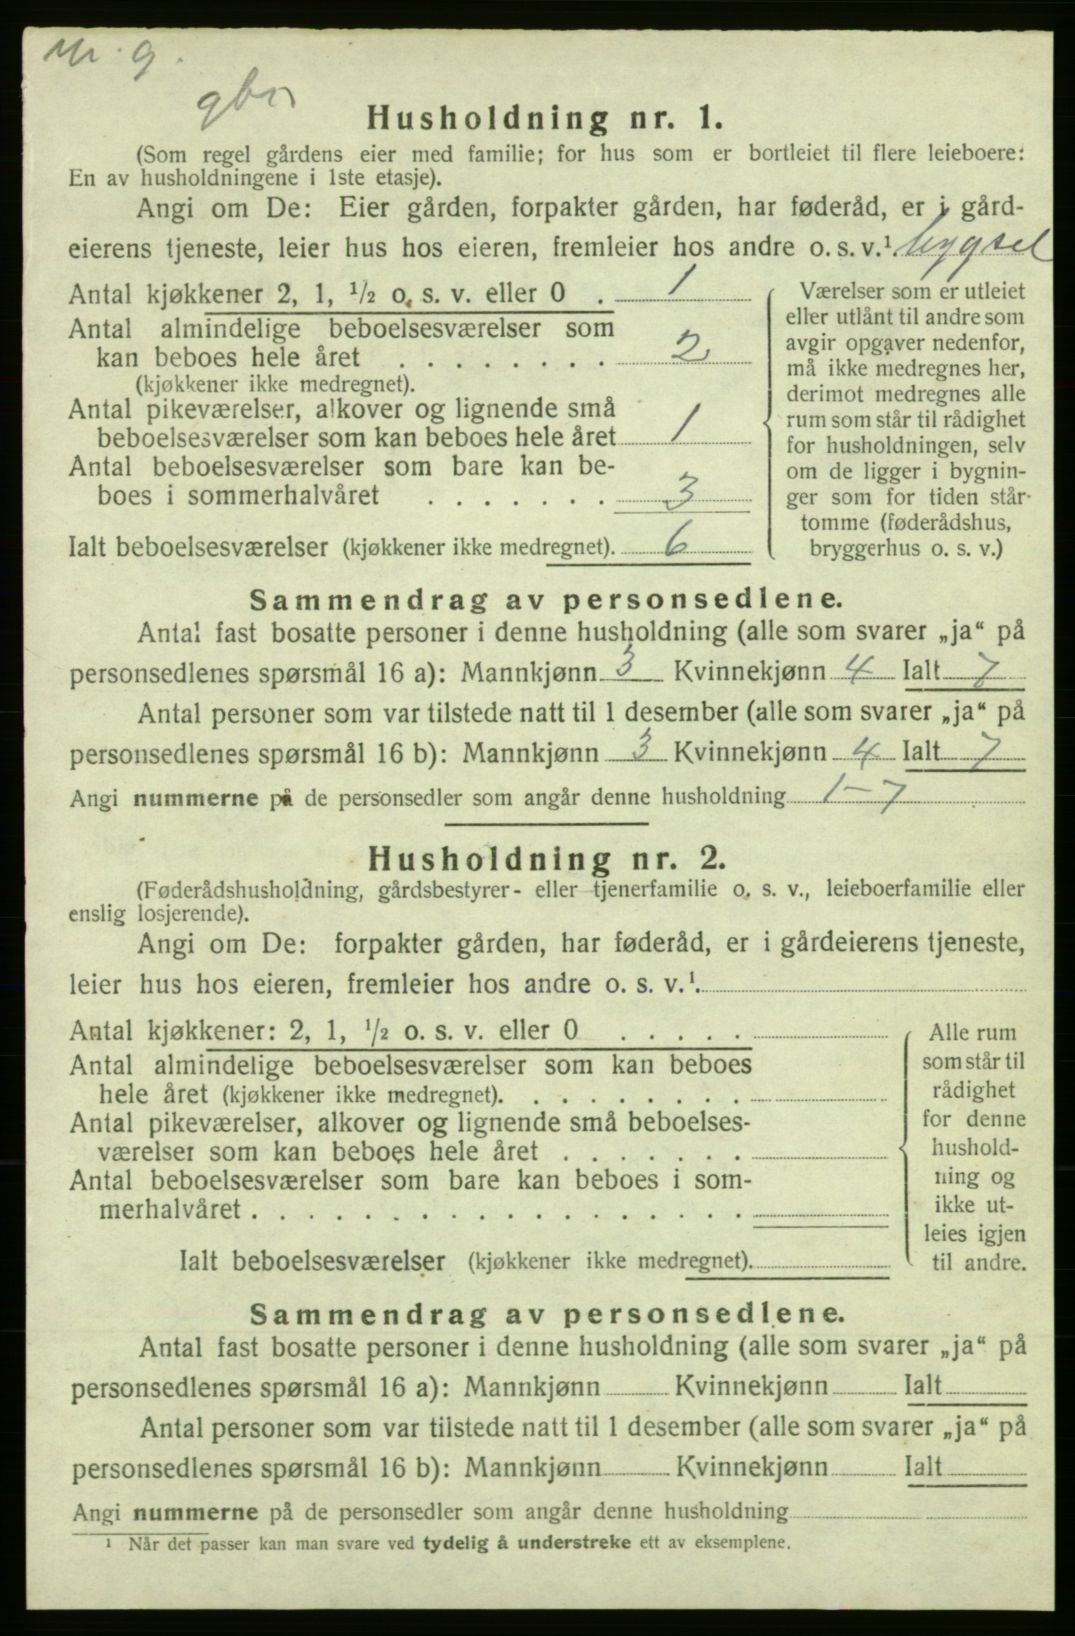 nr. 9.
Husholdning nr. 1.
(Som regel gårdens eier med familie; for hus som er bortleiet til flere leieboere:
En av husholdningene i 1ste etasje).
Angi om De: Eier gården, forpakter gården, har føderåd, er i gård-
eierens tjeneste, leier hus hos eieren, fremleier hos andre o. s. v.¹. bygsel
Antal kjøkkener 2, 1, ½ o. s. v. eller 0 . 1
Antal almindelige beboelsesværelser som
kan beboes hele året . . . . . . . . 2
(kjøkkener ikke medregnet).
Antal pikeværelser, alkover og lignende små
beboelsesværelser som kan beboes hele året 1
Antal beboelsesværelser som bare kan be-
boes i sommerhalvåret . . . . . . . 3
Ialt beboelsesværelser (kjøkkener ikke medregnet). 6
Værelser som er utleiet
eller utlånt til andre som
avgir opgaver nedenfor,
må ikke medregnes her,
derimot medregnes alle
rum som står til rådighet
for husholdningen, selv
om de ligger i bygnin-
ger som for tiden står
tomme (føderådshus,
bryggerhus o. s. v.)
Sammendrag av personsedlene.
Antal fast bosatte personer i denne husholdning (alle som svarer „ja“ på
personsedlenes spørsmål 16 a): Mannkjønn 3 Kvinnekjønn 4 Ialt 7
Antal personer som var tilstede natt til 1 desember (alle som svarer „ja“ på
personsedlenes spørsmål 16 b): Mannkjønn 3 Kvinnekjønn 4 Ialt 7
Angi nummerne på de personsedler som angår denne husholdning 1-7
Husholdning nr. 2.
(Føderådshusholdning, gårdsbestyrer- eller tjenerfamilie o. s. v., leieboerfamilie eller
enslig losjerende).
Angi om De: forpakter gården, har føderåd, er i gårdeierens tjeneste,
leier hus hos eieren, fremleier hos andre o. s. v.¹.
Antal kjøkkener: 2, 1, ½ o. s. v. eller 0 . . . . .
Antal almindelige beboelsesværelser som kan beboes
hele året (kjøkkener ikke medregnet). . . . . . . . .
Antal pikeværelser, alkover og lignende små beboelses-
værelser som kan beboes hele året . . . . . . .
Antal beboelsesværelser som bare kan beboes i som-
merhalvåret . . . . . . . . . . . . . . . . . .
Ialt beboelsesværelser (kjøkkener ikke medregnet).
Alle rum
som står til
rådighet
for denne
hushold-
ning og
ikke ut-
leies igjen
til andre.
Sammendrag av personsedlene.
Antal fast bosatte personer i denne husholdning (alle som svarer „ja“ på
personsedlenes spørsmål 16 a): Mannkjønn Kvinnekjønn Ialt
Antal personer som var tilstede natt til 1 desember (alle som svarer „ja“ på
personsedlenes spørsmål 16 b): Mannkjønn Kvinnekjønn Ialt
Angi nummerne på de personsedler som angår denne husholdning
¹ Når det passer kan man svare ved tydelig å understreke ett av eksemplene.